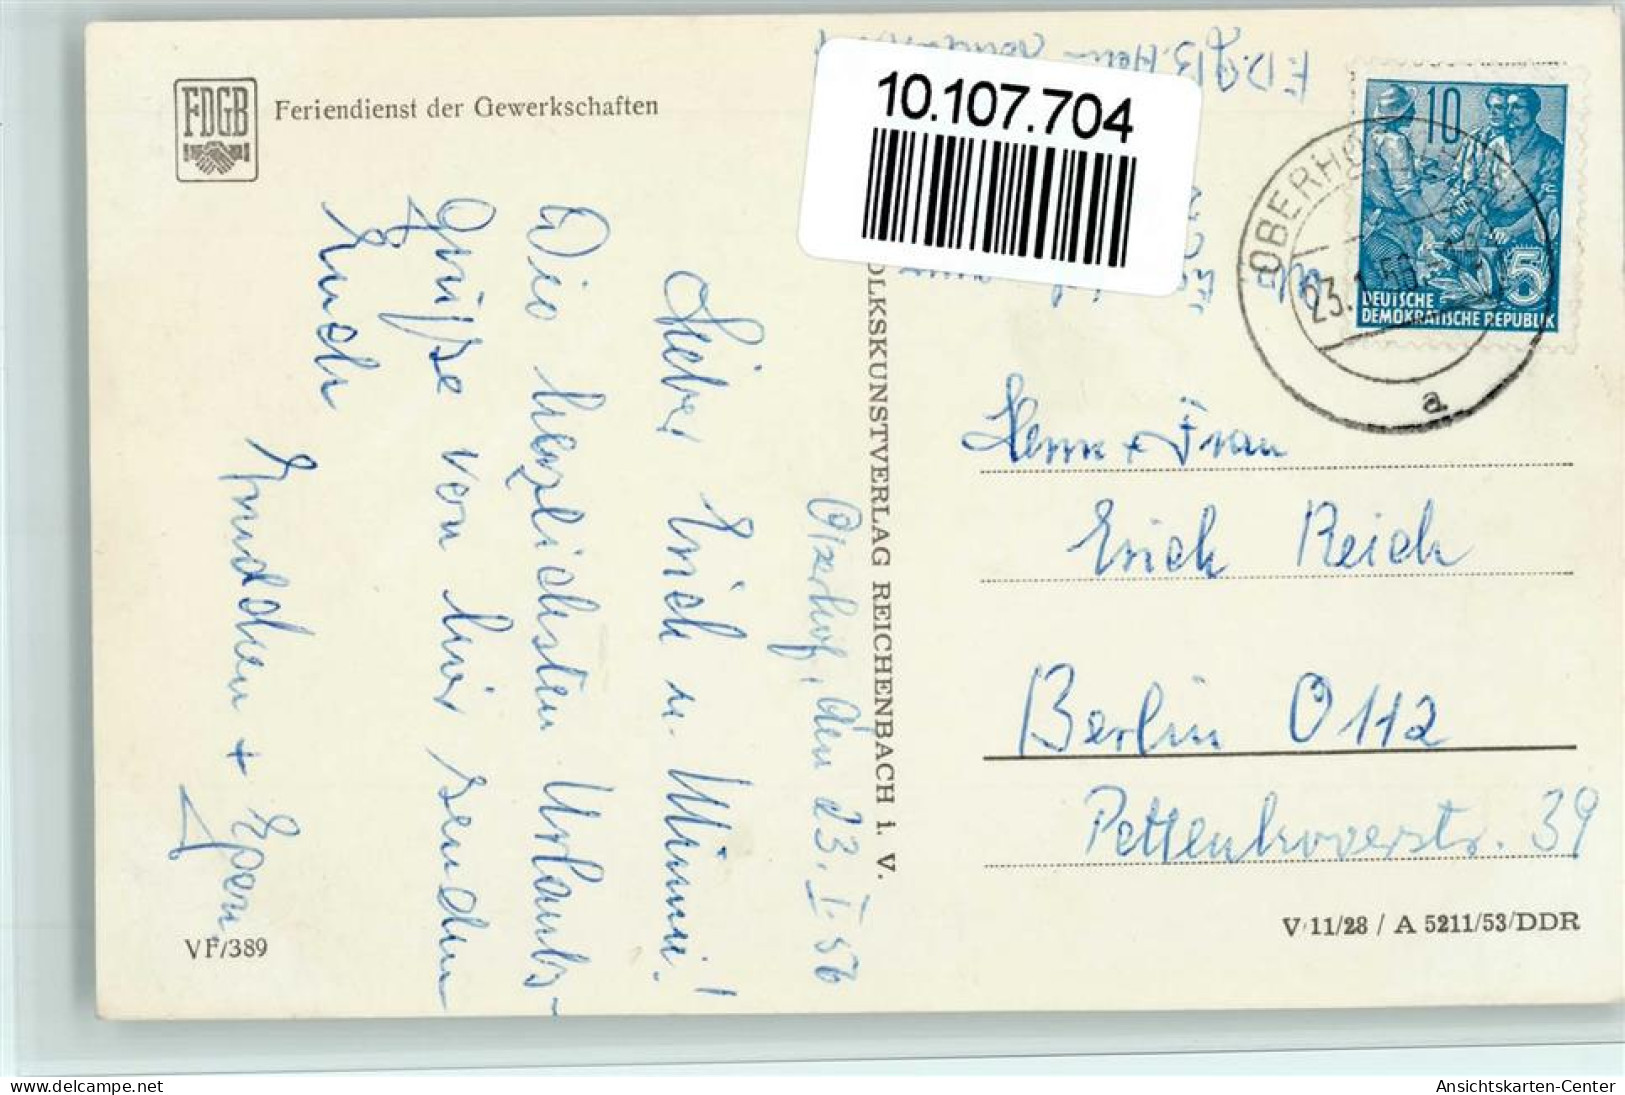 FDGB
Feriendienst der Gewerkschaften
F.D.G.B. Heim
10.107.704
10
5
DEUTSCHE
DEMOKRATISCHE REPUBLIK
OBERHOF
23.1.56
a
Oberhof, den 23. I. 56
Lieber Erich u. Mimmi!
Die herzlichsten Urlaubs-
grüße von hier senden
Euch
+
VOLKSKUNSTVERLAG REICHENBACH i. V.
Herrn + Frau
Erich Reich
Berlin O 112
Pettenkoverstr. 39
VF/389
V/11/28 / A 5211/53/DDR
delcampe.net
Ansichtskarten-Center